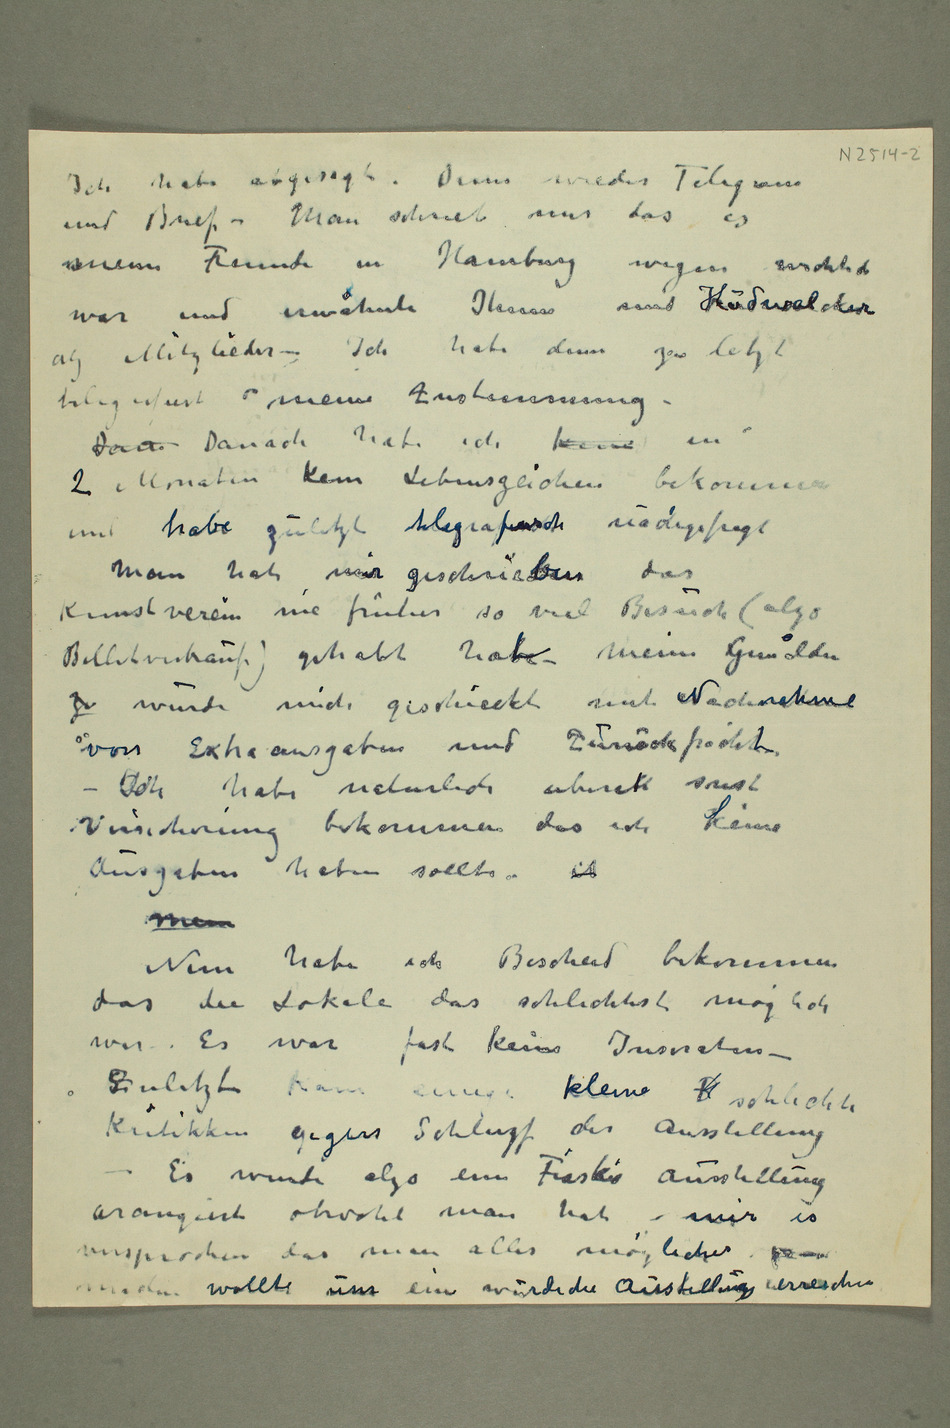 N2514-2
Ich habe abgesagt. Dann wieder Telegram
und Brief – Man schrieb mir das es
meine Freunde in Hamburg wegen
war und erwåhnte Ihnen und Hüdwalcker
als Mitglieder – Ich habe dann zu letzt
telegrafiert meine Zustimmung –
Dan Danach habe ich keine in
2 Monaten kein Lebenszeichen bekommen
und habe zuletzt telegrafisch nachgefragt
Man hat mir geschrieben das
Kunstverein nie früher so viel Besuch (also
Billetverkauf) gehabt habe – Meine Gemålde
zu wurde mich geschickt mit Nachnahme
von Extraausgaben und Zurückfracht.
– Ich habe naturlich uberalt sonst
Versicherung bekommen das ich keine
Ausgaben haben sollte. it
mein
Nun habe ich Bescheid bekommen
das die Lokale das schlechtest möglich
war. Es war fast keine Inseraten –
Zuletzt kam einige kleine K schlechte
Kritikken gegen Schlusz der Ausstellung
– Es wurde also eine Fiasko Ausstellung
arangiert obwohl man hat – mir es
versprochen das man alles mögliches
machen wollte um ein würdiche Ausstellung erreichen